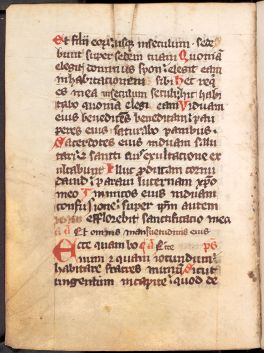 Et filii eorum usque in seculum · sede
bunt super sedem tuam Quoniam
elegit dominus syon : elegit eam
in habitationem sibi Hec requi
es mea in seculum seculi : hic habi
tabo quoniam elegi eam Viduam
eius benedicens benedicam : pau
peres eius saturabo panibus ·
Sacerdotes eius induam salu
tari : et sancti eius exultatione ex
ultabunt Illuc producam cornu
dauid : paraui lucernam xpo
meo Inimicos eius induam
confusione : super ipsum autem
efflorebit sanctificatio mea
Et omnis mansuetudinis eius
Ecce quam bo Ecce ps
num et quam iocundum :
habitare fratres in unum Sicut
ungentum in capite : quod de